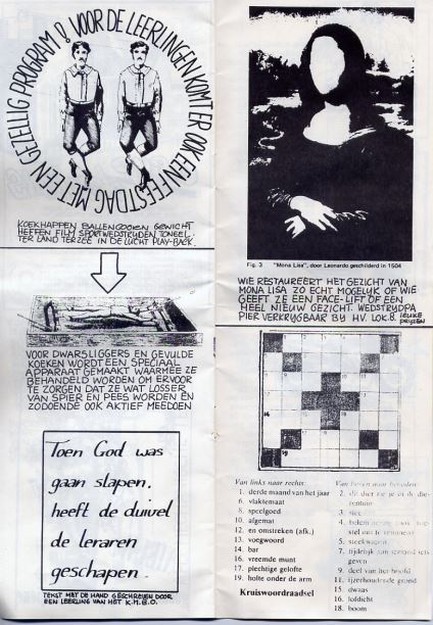 VOOR DE LEERLINGEN KOMT ER OOK EEN FEESTDAG MET EEN GEZELLIG PROGRAM!
KOEKHAPPEN BALLENGOOIEN GEWICHT
HEFFEN FILM SPORTWEDSTRIJDEN TONEEL.
TER LAND TER ZEE IN DE LUCHT PLAY-BACK.
VOOR DWARSLIGGERS EN GEVULDE
KOEKEN WORDT EEN SPECIAAL
APPARAAT GEMAAKT WAARMEE ZE
BEHANDELD WORDEN OM ERVOOR
TE ZORGEN DAT ZE WAT LOSSER
VAN SPIER EN PEES WORDEN EN
ZODOENDE OOK AKTIEF MEEDOEN
Toen God was
gaan slapen,
heeft de duivel
de leraren
geschapen.
TEKST MET DE HAND GESCHREVEN DOOR
EEN LEERLING VAN HET K.M.B.O.
Fig. 3 "Mona Lisa", door Leonardo geschilderd in 1504
WIE RESTAUREERT HET GEZICHT VAN
MONA LISA ZO ECHT MOGELIJK OF WIE
GEEFT ZE EEN FACE-LIFT OF EEN
HEEL NIEUW GEZICHT. WEDSTRYDPA
PIER VERKRYGBAAR BY HV. LOK. 8.
Van links naar rechts
1. derde maand van het jaar
6. vlaktemaat
8. speelgoed
10. afgemat
12. en omstreken (afk.)
13. voegwoord
14. bar
16. vreemde munt
17. plechtige gelofte
19. holte onder de arm
Kruiswoordraadsel
Van boven naar beneden
2. dit dier zie je in de die-
rentuin
3.
4.
5.
7. tijdelijk aan iemand iets
geven
9. deel van het hoofd
11. ijzerhoudende grond
15. dwaas
16. lofdicht
18. boom